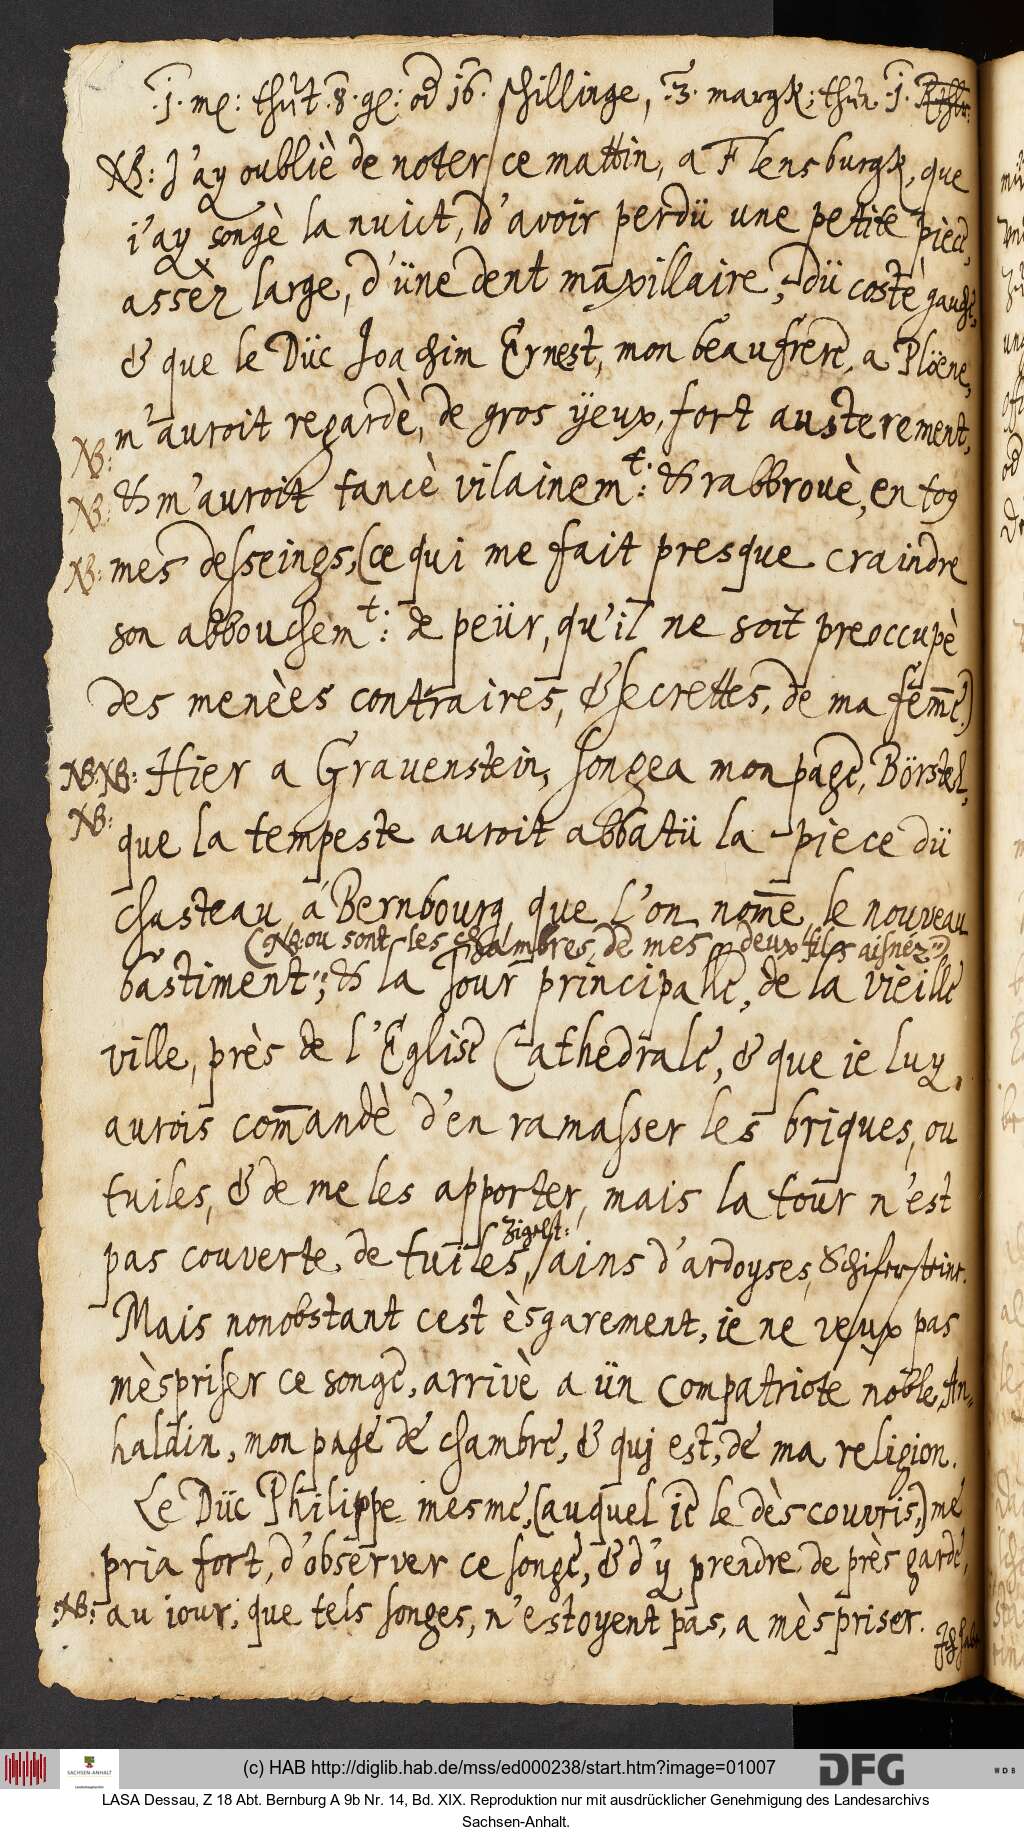 .1. mg: thut .8. gl: od 16. schillinge, .3. margk: thun .1. Rthlr:
NB: J'ay oubliè de noter ce mattin, a Flensburgk, que
i'ay songè la nuict, d'avoir perdü une petite piece,
assèz large, d'üne dent maxillaire, dü costè gauche,
& que le Düc Joachim Ernest, mon beaufrere, a Plöene,
NB: m'auroit regardè, de gros ÿeux, fort austerement,
NB: & m'auroit tancè vilainem.t: & rabbrouè, en tous
NB: mes desseings, (ce qui me fait presque craindre
son abbouchem.t: de peür, qu'il ne soit preoccupè
des menèes contraires, & secrettes, de ma fem̄e.)
NB: NB: Hier a Gravenstein, songea mon page, Börstel,
NB: que la tempeste auroit abbatü la piece dü
chasteau á Bernbourg que l'on nom̄e le nouveau
(NB: ou sont les chambres, de mes deux fils aisnéz)
bastiment; & la Tour principale, de la vieille
ville, près de l'Eglise Cathedrale, & que ie luy
aurois com̄andè d'en ramasser les briques, ou
tuiles, & de me les apporter, mais la tour n'est
pas couverte, de tuiles, Zigelst: ains d'ardoyses, Schifersteine.
Mais nonobstant cest èsgarement, ie ne veux pas
mèspriser ce songe, arrivè a ün compatriote noble, An-
haldin, mon page de chambre, & quj est, de ma religion.
Le Düc Philippe mesme, (auquel ie le dèscouvris,) me
pria fort, d'observer ce songe, & d'y prendre de près garde,
:NB: au iour, que tels songes, n'estoyent pas, a mèspriser.
(c) HAB http://diglib.hab.de/mss/ed000238/start.htm?image=01007
SACHSEN-ANHALT
DFG
WDB
LASA Dessau, Z 18 Abt. Bernburg A 9b Nr. 14, Bd. XIX. Reproduktion nur mit ausdrücklicher Genehmigung des Landesarchivs
Sachsen-Anhalt.